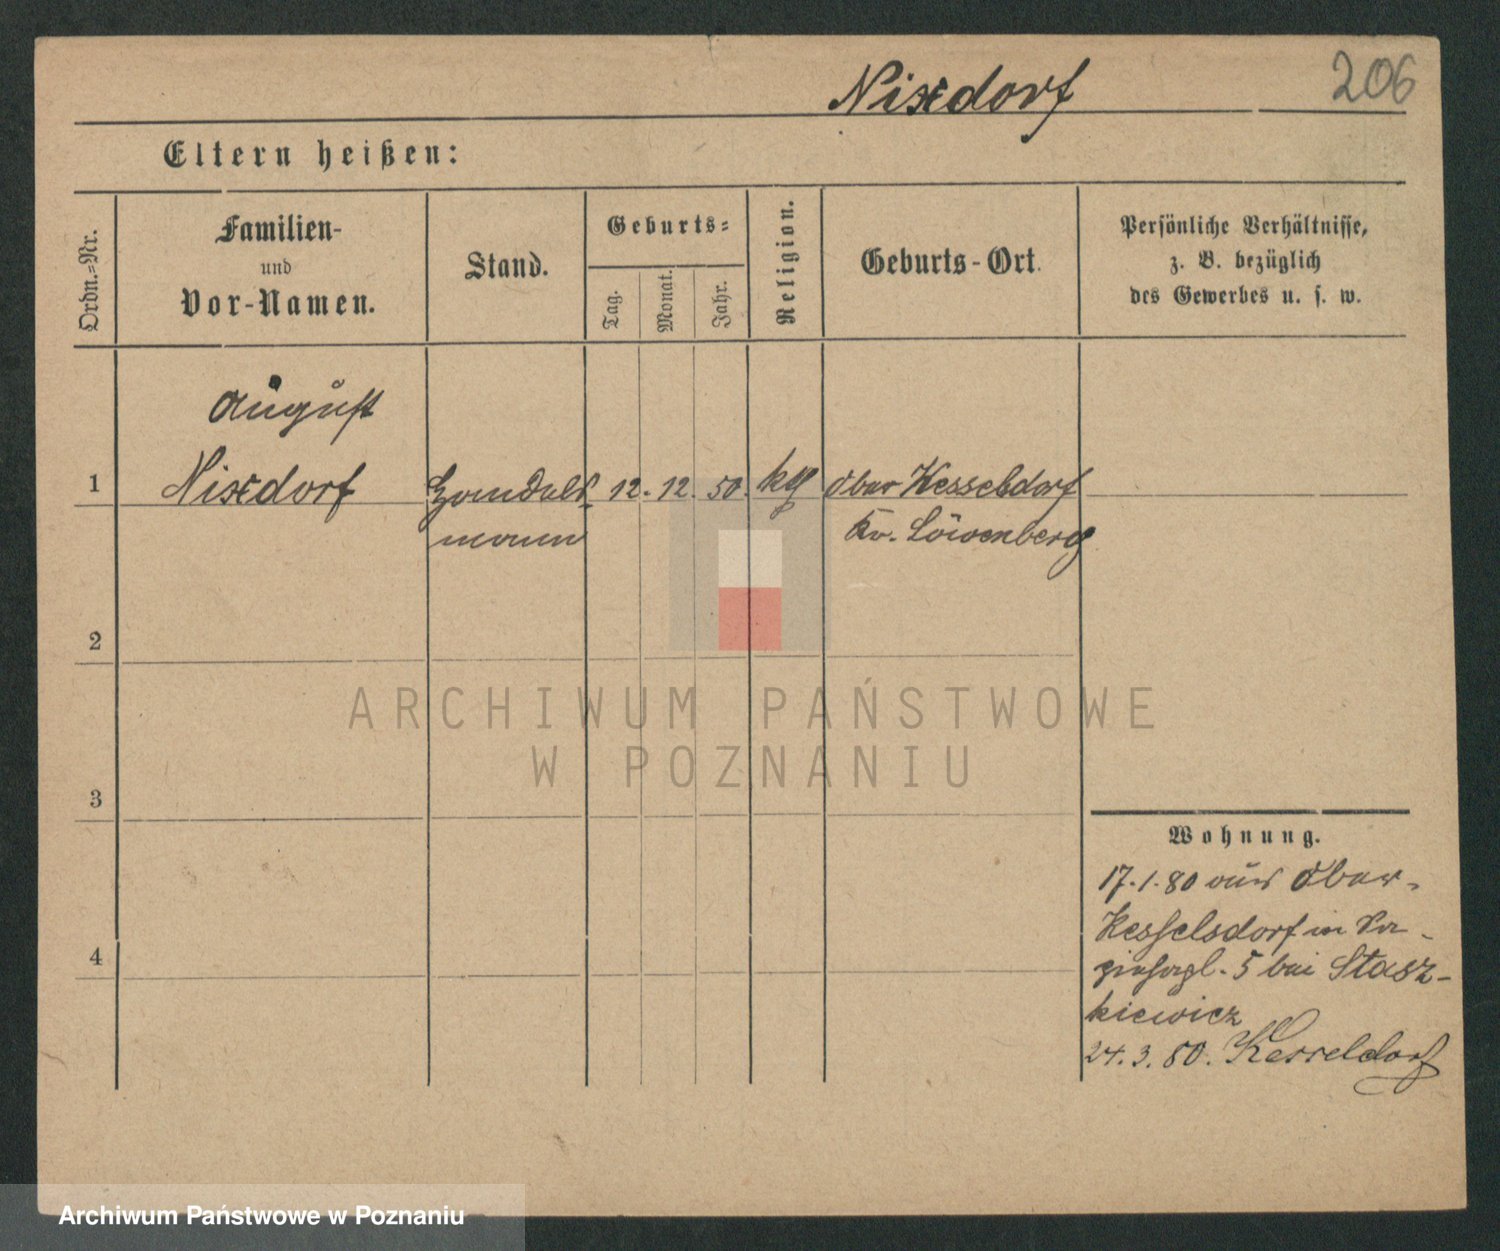 Nixdorf
206
Eltern heißen:
Ordn.-Nr.
Familien-
und
Vor-Namen.
Stand.
Geburts-
Tag.
Monat.
Jahr.
Religion.
Geburts-Ort.
Persönliche Verhältnisse,
z. B. bezüglich
des Gewerbes u. s. w.
August
1 Nixdorf Handels- 12. 12. 50. kg Ober Kesselsdorf
mann Kr. Löwenberg
2
3
4
Wohnung.
17.1.80 aus Ober-
Kesselsdorf in
5 bei Stasz-
kiewicz
24.3.80. Kesseldorf
ARCHIWUM PAŃSTWOWE
W POZNANIU
Archiwum Państwowe w Poznaniu